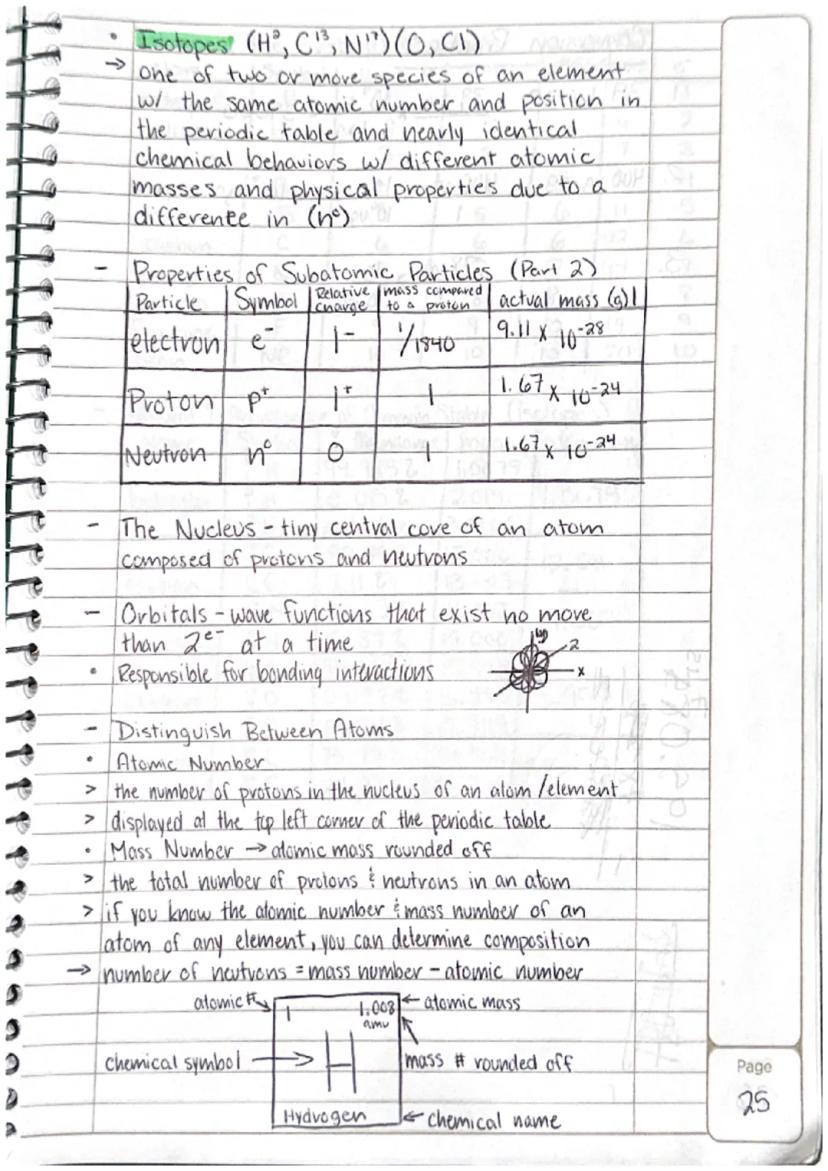 • Isotopes (H², C¹³, N¹⁷)(O, Cl)
→ one of two or more species of an element
w/ the same atomic number and position in
the periodic table and nearly identical
chemical behaviors w/ different atomic
masses and physical properties due to a
differente in (n°)
- Properties of Subatomic Particles (Part 2)
Particle | Symbol | Relative charge | mass compared to a proton | actual mass (g)
electron | e⁻ | 1⁻ | 1/1840 | 9.11 x 10⁻²⁸
Proton | p⁺ | 1⁺ | 1 | 1.67 x 10⁻²⁴
Neutron | n° | 0 | 1 | 1.67 x 10⁻²⁴
- The Nucleus - tiny central cove of an atom
composed of protons and neutrons
- Orbitals - wave functions that exist no more
than 2e⁻ at a time
y
z
x
• Responsible for bonding interactions
- Distinguish Between Atoms
• Atomic Number
> the number of protons in the nucleus of an atom/element
> displayed at the top left corner of the periodic table
• Mass Number → atomic mass rounded off
> the total number of protons & neutrons in an atom
> if you know the atomic number & mass number of an
atom of any element, you can determine composition
→ number of neutrons = mass number - atomic number
atomic #
1
1.008
amu
← atomic mass
chemical symbol →
H
mass # rounded off
Hydrogen
← chemical name
Page
25